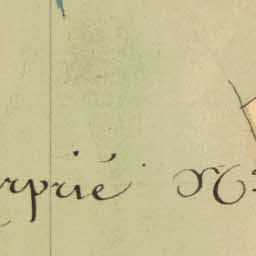 rprié N: